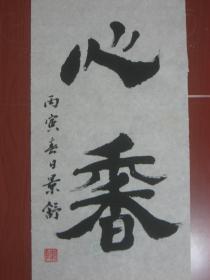 心香
丙寅春日景舒